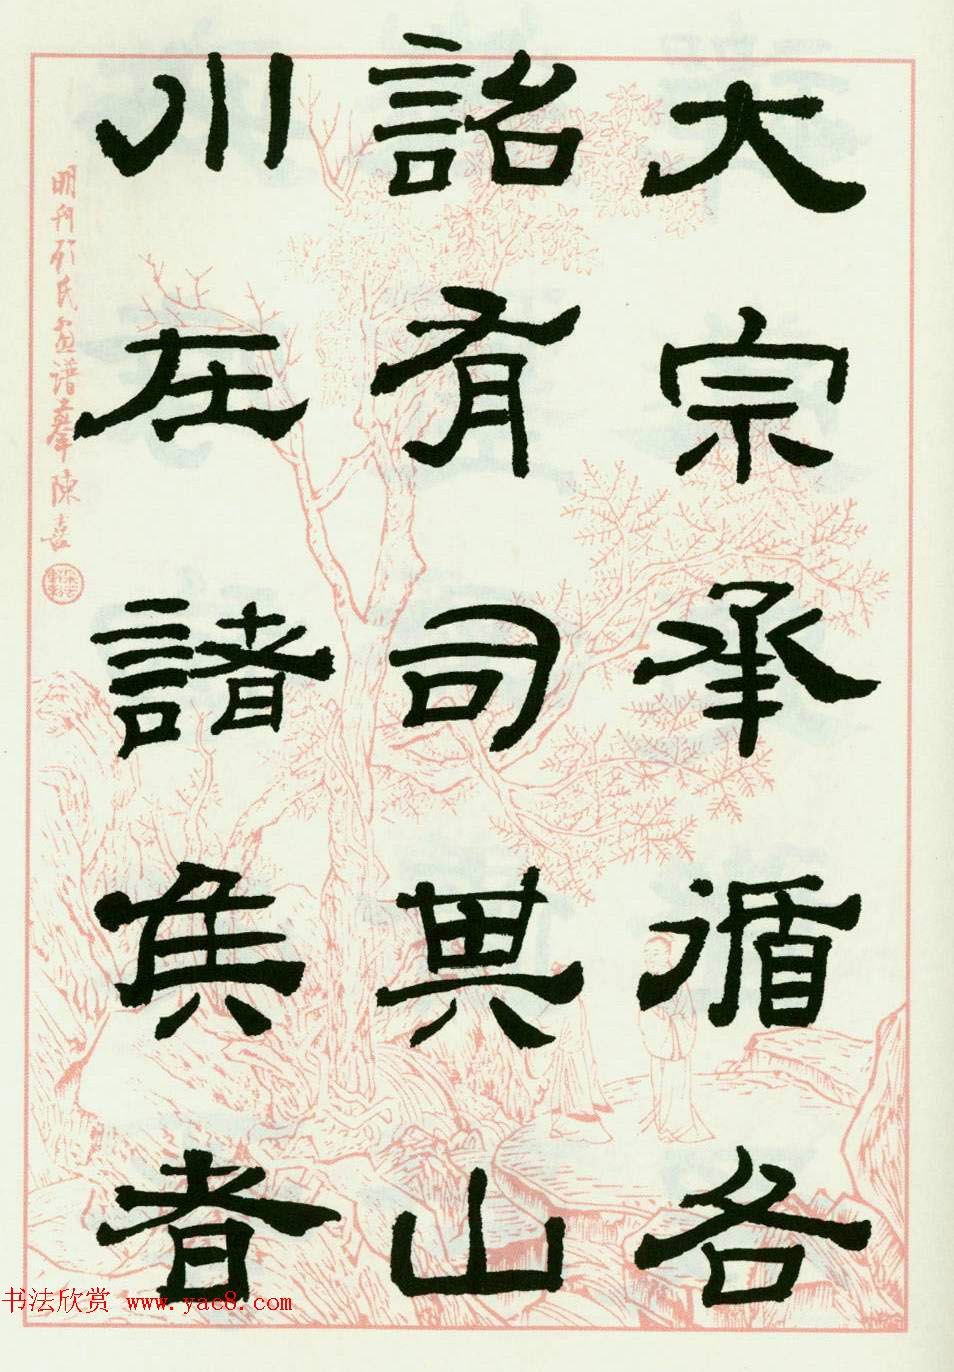 大宗承循各
詔有司其山
川在諸侯者
明刊顾氏画谱摹陳喜
书法欣赏 www.yac8.com